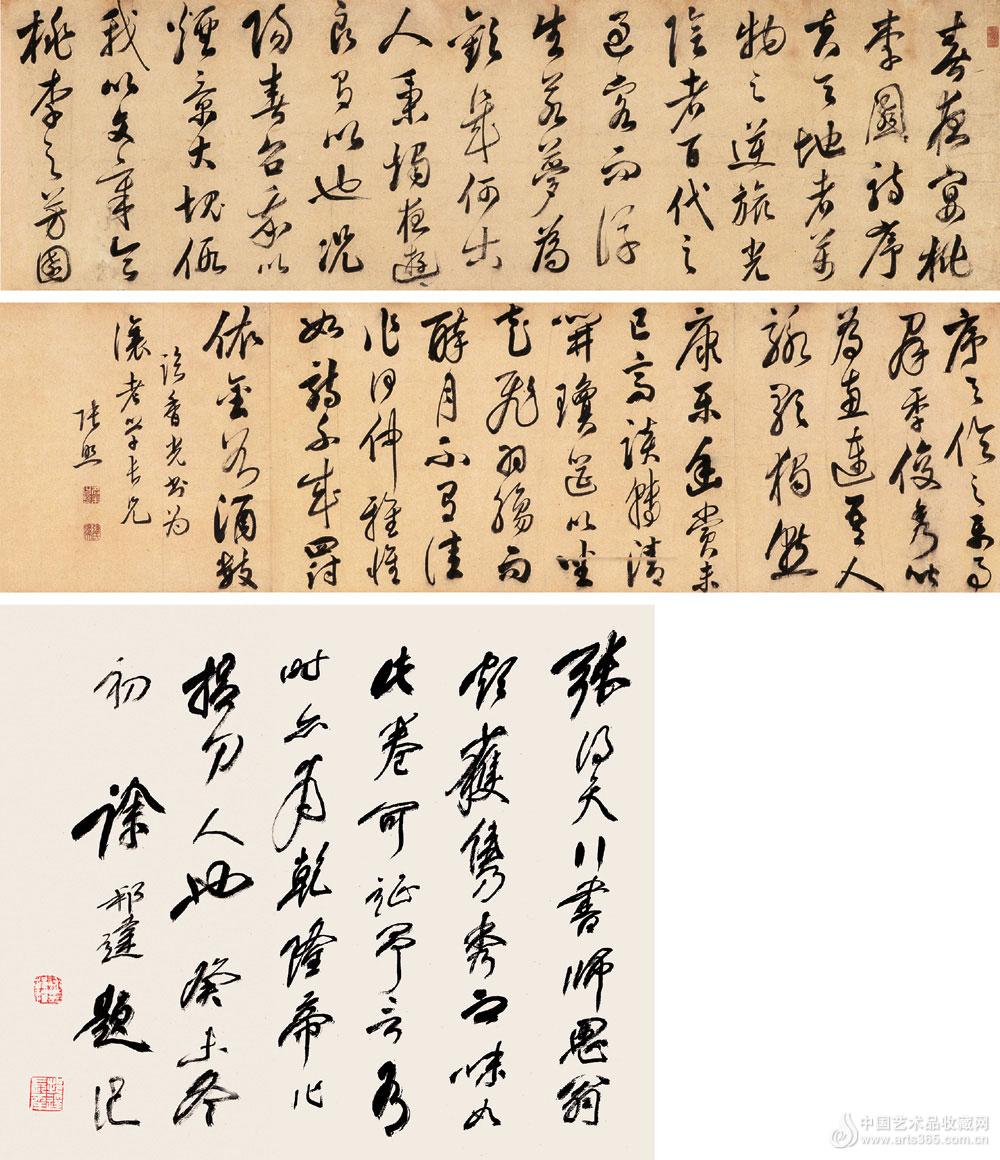 春夜宴桃
李園詩序
夫天地者萬
物之逆旅光
陰者百代之
過客而浮
生若夢為
歡幾何古
人秉燭夜遊
良有以也況
陽春召我以
煙景大塊假
我以文章會
桃李之芳園
序天倫之樂事
群季俊秀皆
為惠連吾人
詠歌獨慙
康樂幽賞未
已高談轉清
開瓊筵以坐
花飛羽觴而
醉月不有佳
作何伸雅懷
如詩不成罰
依金谷酒數
臨香光書为
老學長兄
張照
張得天行書師思翁
頗獲雋秀之味如
此卷可證予言
時亦為乾隆帝代
捉刀人也 癸未冬
初 徐邦達題記
中国艺术品收藏网
www.arts365.com.cn